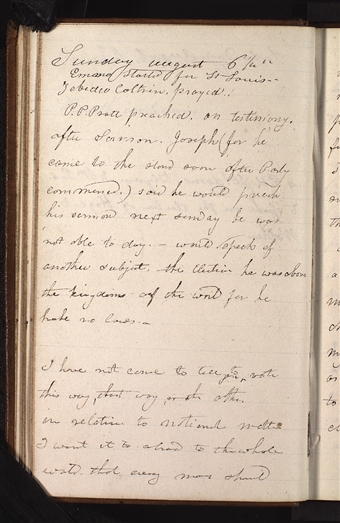 Sunday august 6th
Emma started for St Louis.
Zebedee Coltrin prayed.
P. P. Pratt preached. on testimony.
after Sermon. Joseph (for he
came to the stand soon after Parly
commenced.) said he would preach
his sermon next sunday he was
not able to day. - would speak of
another subject. the Election he was above
the kingdoms of the world for he
had no laws. -
I have not come to tell you to vote
this way, that way, or the other.
in relation to national matters
I want it to abroad to the whole
world that every man should